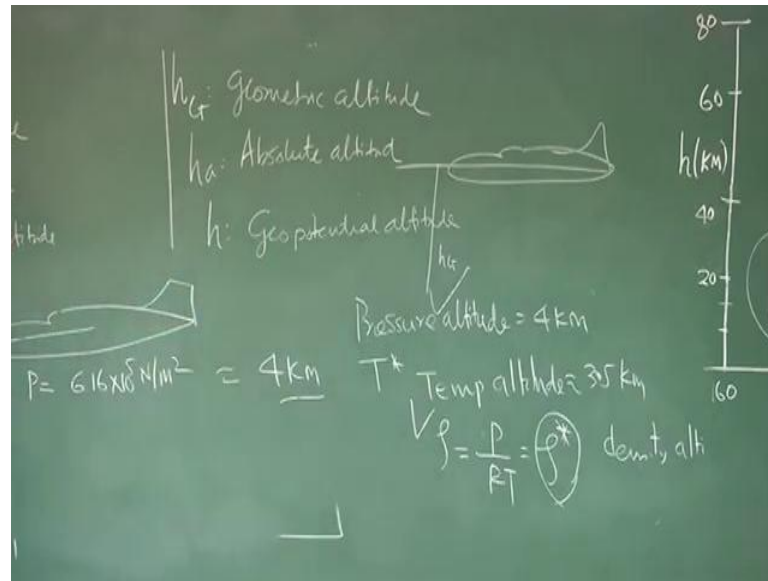 h_G: Geometric altitude
ha: Absolute altitud
h: Geopotential altitude
titude
hG
Pressure altitude = 4 km
P = 616x10^5 N/m^2 = 4 km
T* Temp altitude = 3.5 km
ρ = P/RT = ρ* density alti
80
60
h(KM)
40
20
160